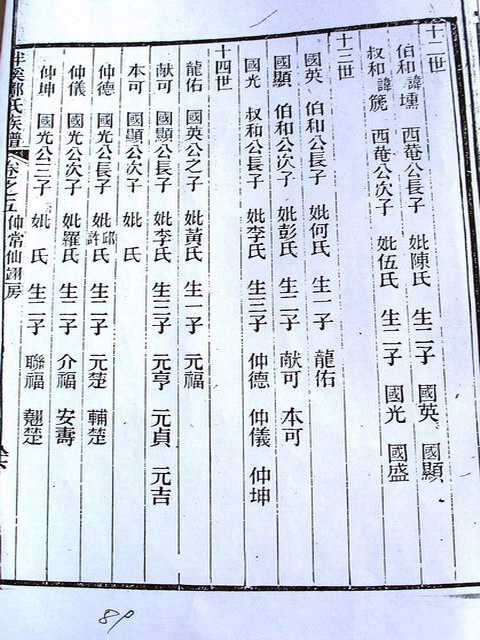 十二世
伯和 諱壎 西菴公長子 妣陳氏 生二子 國英 國顯
叔和 諱箎 西菴公次子 妣伍氏 生二子 國光 國盛
十三世
國英 伯和公長子 妣何氏 生一子 龍佑
國顯 伯和公次子 妣彭氏 生二子 献可 本可
國光 叔和公長子 妣李氏 生三子 仲德 仲儀 仲坤
十四世
龍佑 國英公之子 妣黃氏 生一子 元福
献可 國顯公長子 妣李氏 生三子 元亨 元貞 元吉
本可 國顯公次子 妣 氏
仲德 國光公長子 妣鄒許氏 生二子 元楚 輔楚
仲儀 國光公次子 妣羅氏 生二子 介福 安壽
仲坤 國光公三子 妣 氏 生二子 聯福 翹楚
氏族譜 卷之五 仙常仙翊房
89